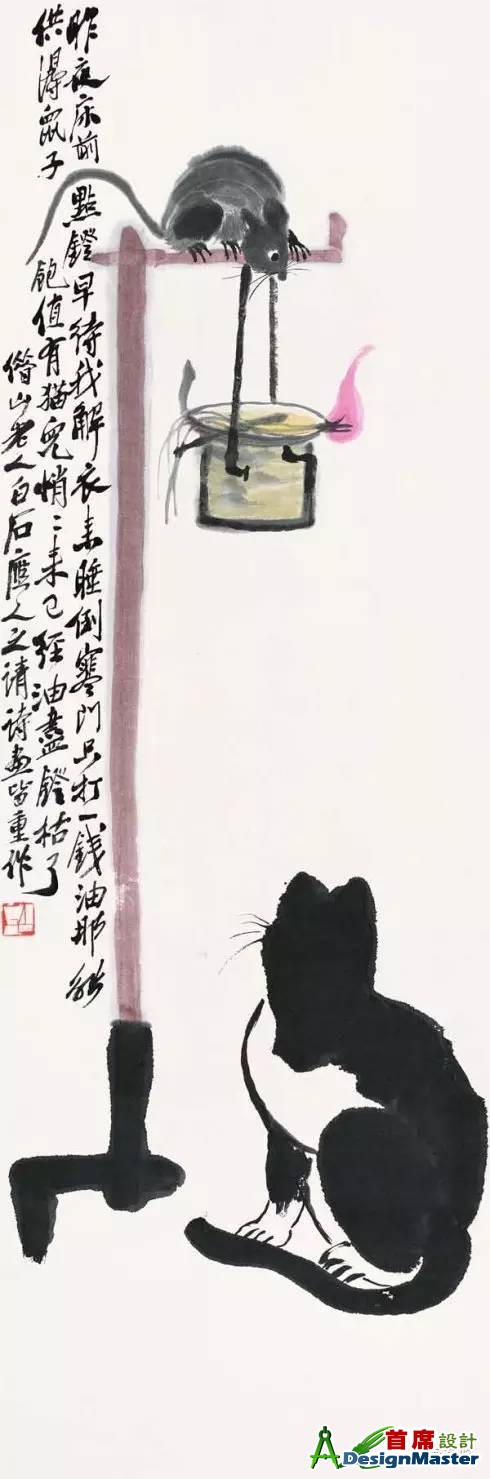 昨夜床前點鐙早待我解衣来睡倒寒門只打一錢油那能
供得鼠子飽值有猫兒悄〻来已經油盡鐙枯了
借山老人白石應人之請詩畫皆重作
首席設計
ADesignMaster